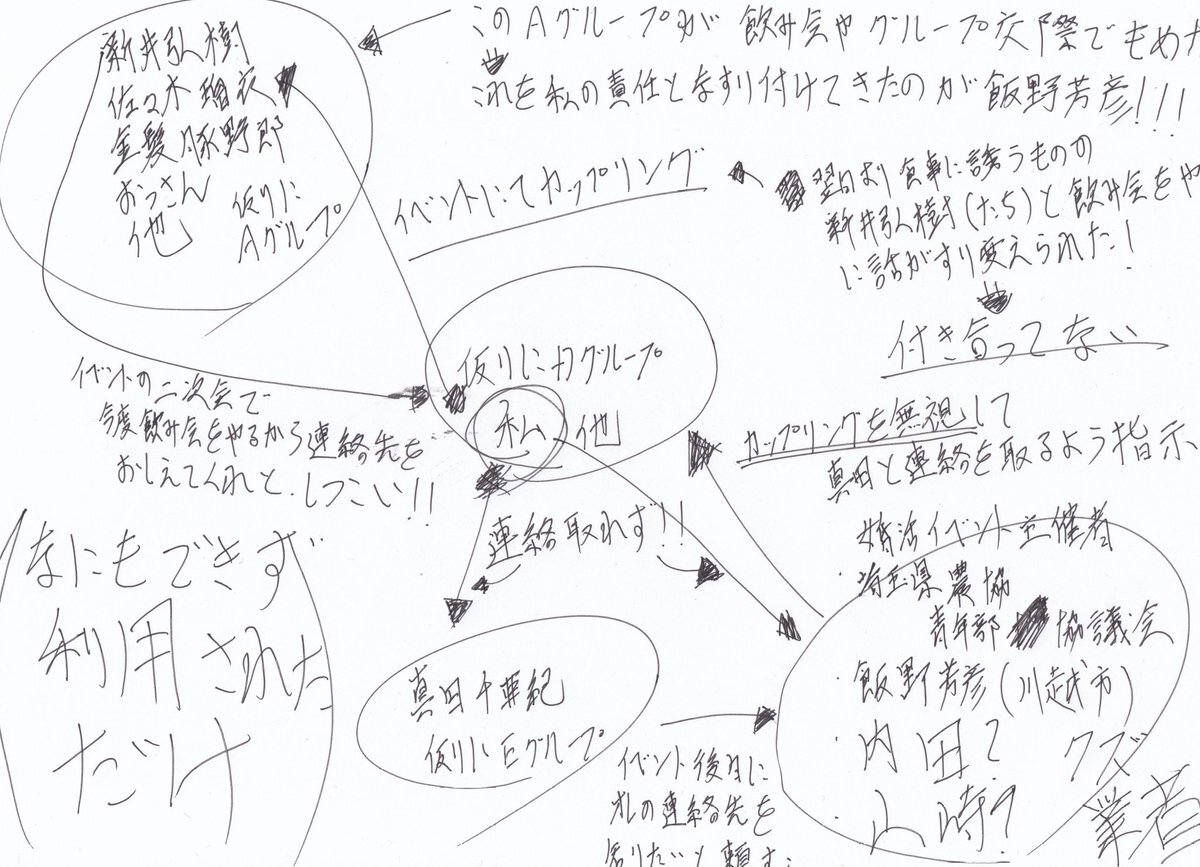 このAグループが飲み会やグループ交際でもめた
これを私の責任となすり付けてきたのが飯野芳彦!!!
新井弘樹
佐々木瑠衣
金髪豚野郎
おっさん
他
仮りに
Aグループ
イベントにてカップリング
翌日より食事に誘うものの
新井弘樹(たち)と飲み会をや
に話がすり変えられた!
付き合ってない
イベントの二次会で
今度飲み会をやるから連絡先を
おしえてくれと、しつこい!!
仮りにBグループ
私 他
カップリングを無視して
真田と連絡を取るよう指示
連絡取れず!!
なにもできず
利用された
だけ
真田千亜紀
仮りにEグループ
イベント後日に
オレの連絡先を
知りたいと頼む
婚活イベント主催者
・埼玉県農協
青年部 協議会
・飯野芳彦(川越市)
・内田?
・山崎?
クズ
業者